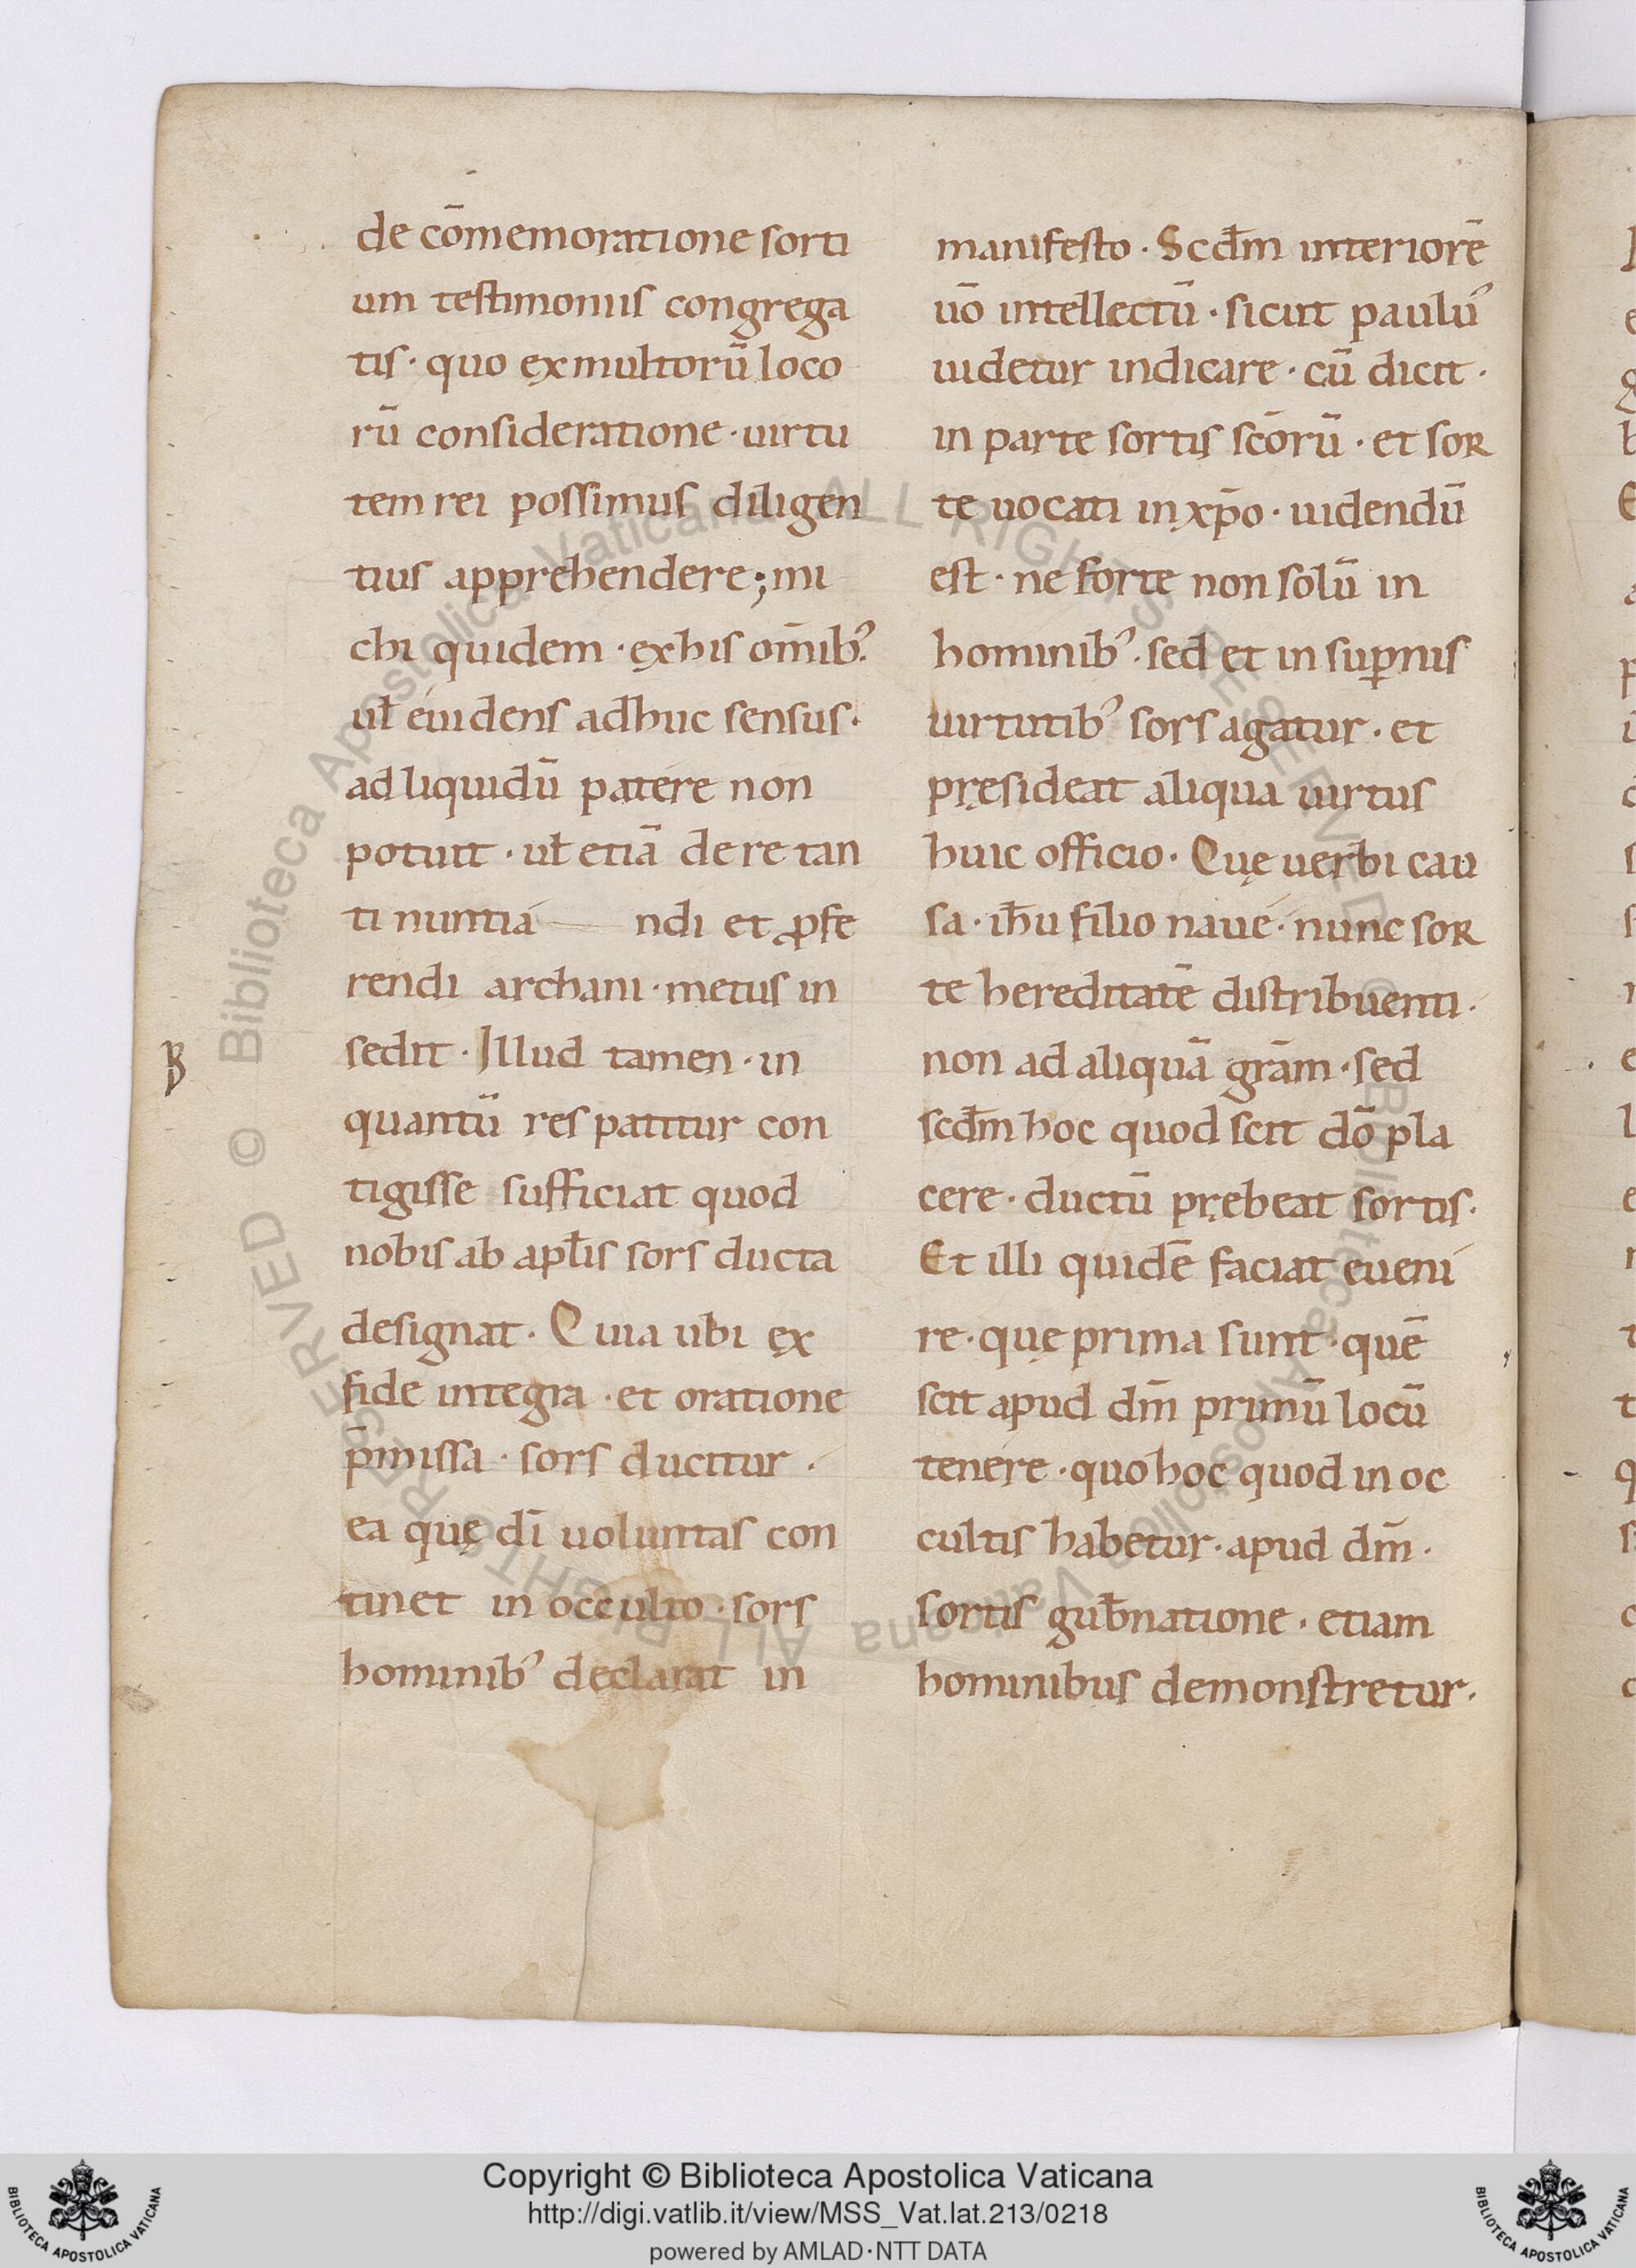 de cōmemoratione sorti
um testimoniis congrega
tis· quo ex multorū loco
rū consideratione· uirtu
tem rei possimus diligen
tius apprehendere; mi
chi quidem· ex his om̄ib᾿.
ul̄ euidens adhuc sensus·
ad liquidū patere non
potuit· ul̄ etiā de re tan
ti nuntia ndi et ꝓfe
rendi archani· metus in
sedit· Illud tamen· in
quantū res patitur con
tigisse sufficiat quod
nobis ab apl̄is sors ducta
designat. Quia ubi ex
fide integra· et oratione
p̄missa· sors ducitur·
ea quę dī uoluntas con
tinet in occulto· sors
hominib᾿ declarat in
manifesto· Scd̄m interiorē
uō intellectū· sicut paulu᾿
uidetur indicare· cū dicit·
in parte sortis scōrū· et sor
te uocati in xp̄o· uidendū
est· ne forte non solū in
hominib᾿· sed et in suꝑnis
uirtutib᾿ sors agatur· et
pręsideat aliqua uirtus
huic officio· Quę uerbi cau
sa· ih̄u filio naue· nunc sor
te hereditatē distribuenti·
non ad aliquā grām· sed
scd̄m hoc quod scit dō pla
cere· ductū prębeat sortis·
Et illi quidē faciat eueni
re· quę prima sunt· quē
scit apud dm̄ primū locū
tenere· quo hoc quod in oc
cultis habetur· apud dm̄·
sortis gub̄natione· etiam
hominibus demonstretur·
Biblioteca Apostolica Vaticana ALL RIGHTS RESERVED ©
Copyright © Biblioteca Apostolica Vaticana
http://digi.vatlib.it/view/MSS_Vat.lat.213/0218
powered by AMLAD·NTT DATA
BIBLIOTECA APOSTOLICA VATICANA
BIBLIOTECA APOSTOLICA VATICANA